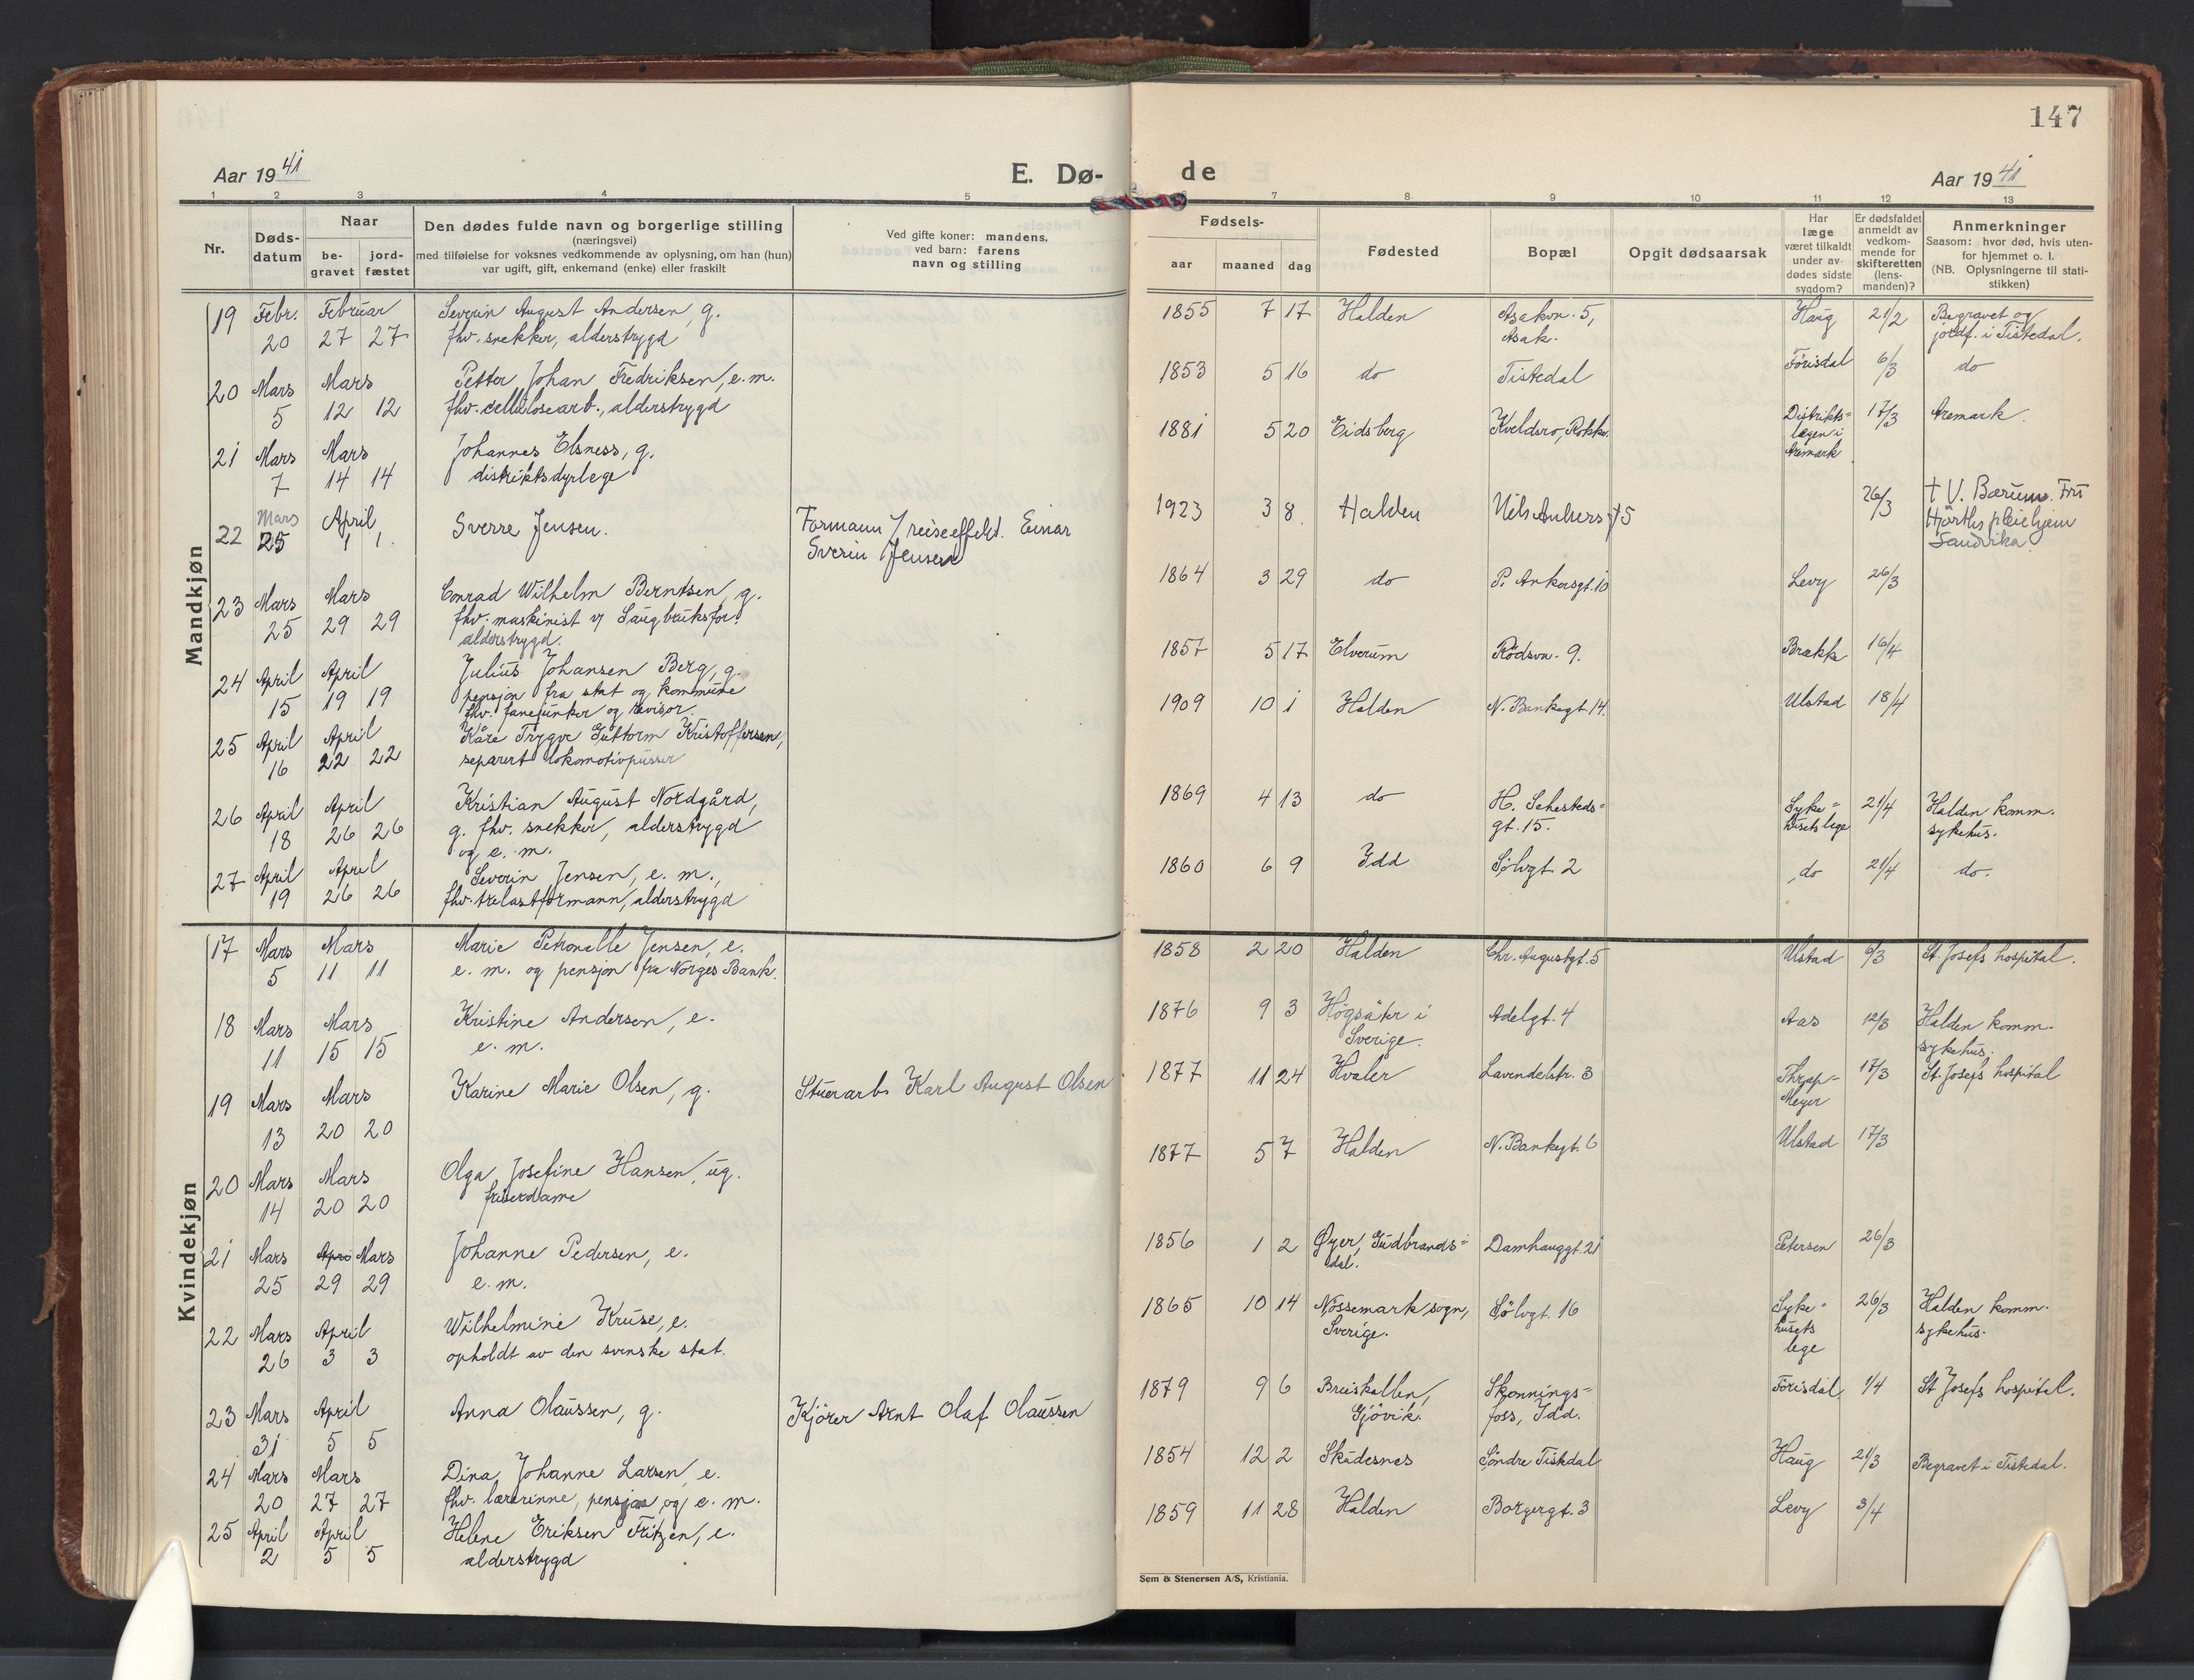 147
Aar 1941
E. Dø-
de
Aar 1941
1 2 3 4 5 6 7 8 9 10 11 12 13
Nr.
Døds-
datum
Naar
be-
gravet
jord-
fæstet
Den dødes fulde navn og borgerlige stilling
(næringsvei)
med tilføielse for voksnes vedkommende av oplysning, om han (hun)
var ugift, gift, enkemand (enke) eller fraskilt
Ved gifte koner: mandens,
ved barn: farens
navn og stilling
Fødsels-
aar maaned dag
Fødested
Bopæl
Opgit dødsaarsak
Har
læge
været tilkaldt
under av-
dødes sidste
sygdom?
Er dødsfaldet
anmeldt av
vedkom-
mende for
skifteretten
(lens-
manden)?
Anmerkninger
Saasom: hvor død, hvis uten-
for hjemmet o. l.
(NB. Oplysningerne til stati-
stikken)
Mandkjøn
19 Febr. Februar Severin August Andersen, g. 1855 7 17 Halden Asakvn. 5, Haug 21/2 Begravet og
20 27 27 fhv. snekker, alderstrygd Asak. jordf. i Tistedal.
20 Mars Mars Petter Johan Fredriksen, e. m. 1853 5 16 do Tistedal Förisdal 6/3 do
5 12 12 fhv. cellulosearb., alderstrygd
21 Mars Mars Johannes Elsness, g. 1881 5 20 Eidsberg Kveldsro, Rokke. Distrikts- 17/3 Aremark.
7 14 14 distriktsdyrlege legen i
Aremark
22 Mars April Sverre Jensen. Formann 1923 3 8 Halden 26/3 † V. Bærum. Fru
25 1 1. Sverin Jensen pleiehjem
Sandvika.
23 Mars Mars Conrad Wilhelm Berntsen, g. 1864 3 29 do P. Ankersgt. 10 Levy 26/3
25 29 29 fhv. maskinist v/ Saugbruksfor.
alderstrygd.
24 April April Julius Johansen Berg, g. 1857 5 17 Elverum Rödsvn. 9. Brækk 16/4
15 19 19 pensjon fra stat og kommune
fhv. fanejunker og revisor.
25 April April Kåre Trygve Guttorm Kristoffersen, 1909 10 1 Halden N. Bankegt. 14. Ulstad 18/4
16 22 22 separert lokomotivpusser
26 April April Kristian August Nordgård, 1869 4 13 do H. Sehesteds- Syke- 21/4 Halden komm.
18 26 26 g. fhv. snekker, alderstrygd gt. 15. husets lege sykehus.
og e. m.
27 April April Severin Jensen, e. m., 1860 6 9 Idd Sölvgt. 2 do 21/4 do.
19 26 26 fhv. trelastformann, alderstrygd
Kvindekjøn
17 Mars Mars Marie Petronelle Jensen, e. 1858 2 20 Halden Chr. Augustgt. 5 Ulstad 6/3 St. Josefs hospital.
5 11 11 e. m. og pensjon fra Norges Bank.
18 Mars Mars Kristine Andersen, e. 1876 9 3 Högsäter i Adelgt. 4 Aas 12/3 Halden komm.
11 15 15 e. m. Sverige. sykehus.
19 Mars Mars Karine Marie Olsen, g. Stuerarb. Karl August Olsen 1877 11 24 Hvaler Lavendelstr. 3 Thrap- 17/3 St. Josefs hospital
13 20 20 Meyer
20 Mars Mars Olga Josefine Hansen, ug. 1877 5 7 Halden N. Bankegt. 6 Ulstad 17/3
14 20 20 friserdame
21 Mars Apri Mars Johanne Pedersen, e. 1856 1 2 Øyer, Gudbrands- Damhauggt. 21 Petersen 26/3
25 29 29 e. m. dal.
22 Mars April Wilhelmine Kruse, e. 1865 10 14 Nössemark sogn, Sölvgt. 16 Syke- 26/3 Halden komm.
26 3 3 opholdt av den svenske stat. Sverige. husets sykehus.
lege
23 Mars April Anna Olaussen, g. Kjörer Arnt Olaf Olaussen 1879 9 6 Bruskallen, Skonnings- Förisdal 1/4 St. Josefs hospital.
31 5 5 Gjövik. foss, Idd.
24 Mars Mars Dina Johanne Larsen, e. 1854 12 2 Skudesnes Söndre Tistedal Haug 21/3 Begravet i Tistedal.
20 27 27 fhv. lærerinne, pensjon og e. m.
25 April April Helene Eriksen Fritzen, e. 1859 11 28 Halden Borgergt. 3 Levy 3/4
2 5 5 alderstrygd
Sem & Stenersen A/S, Kristiania.